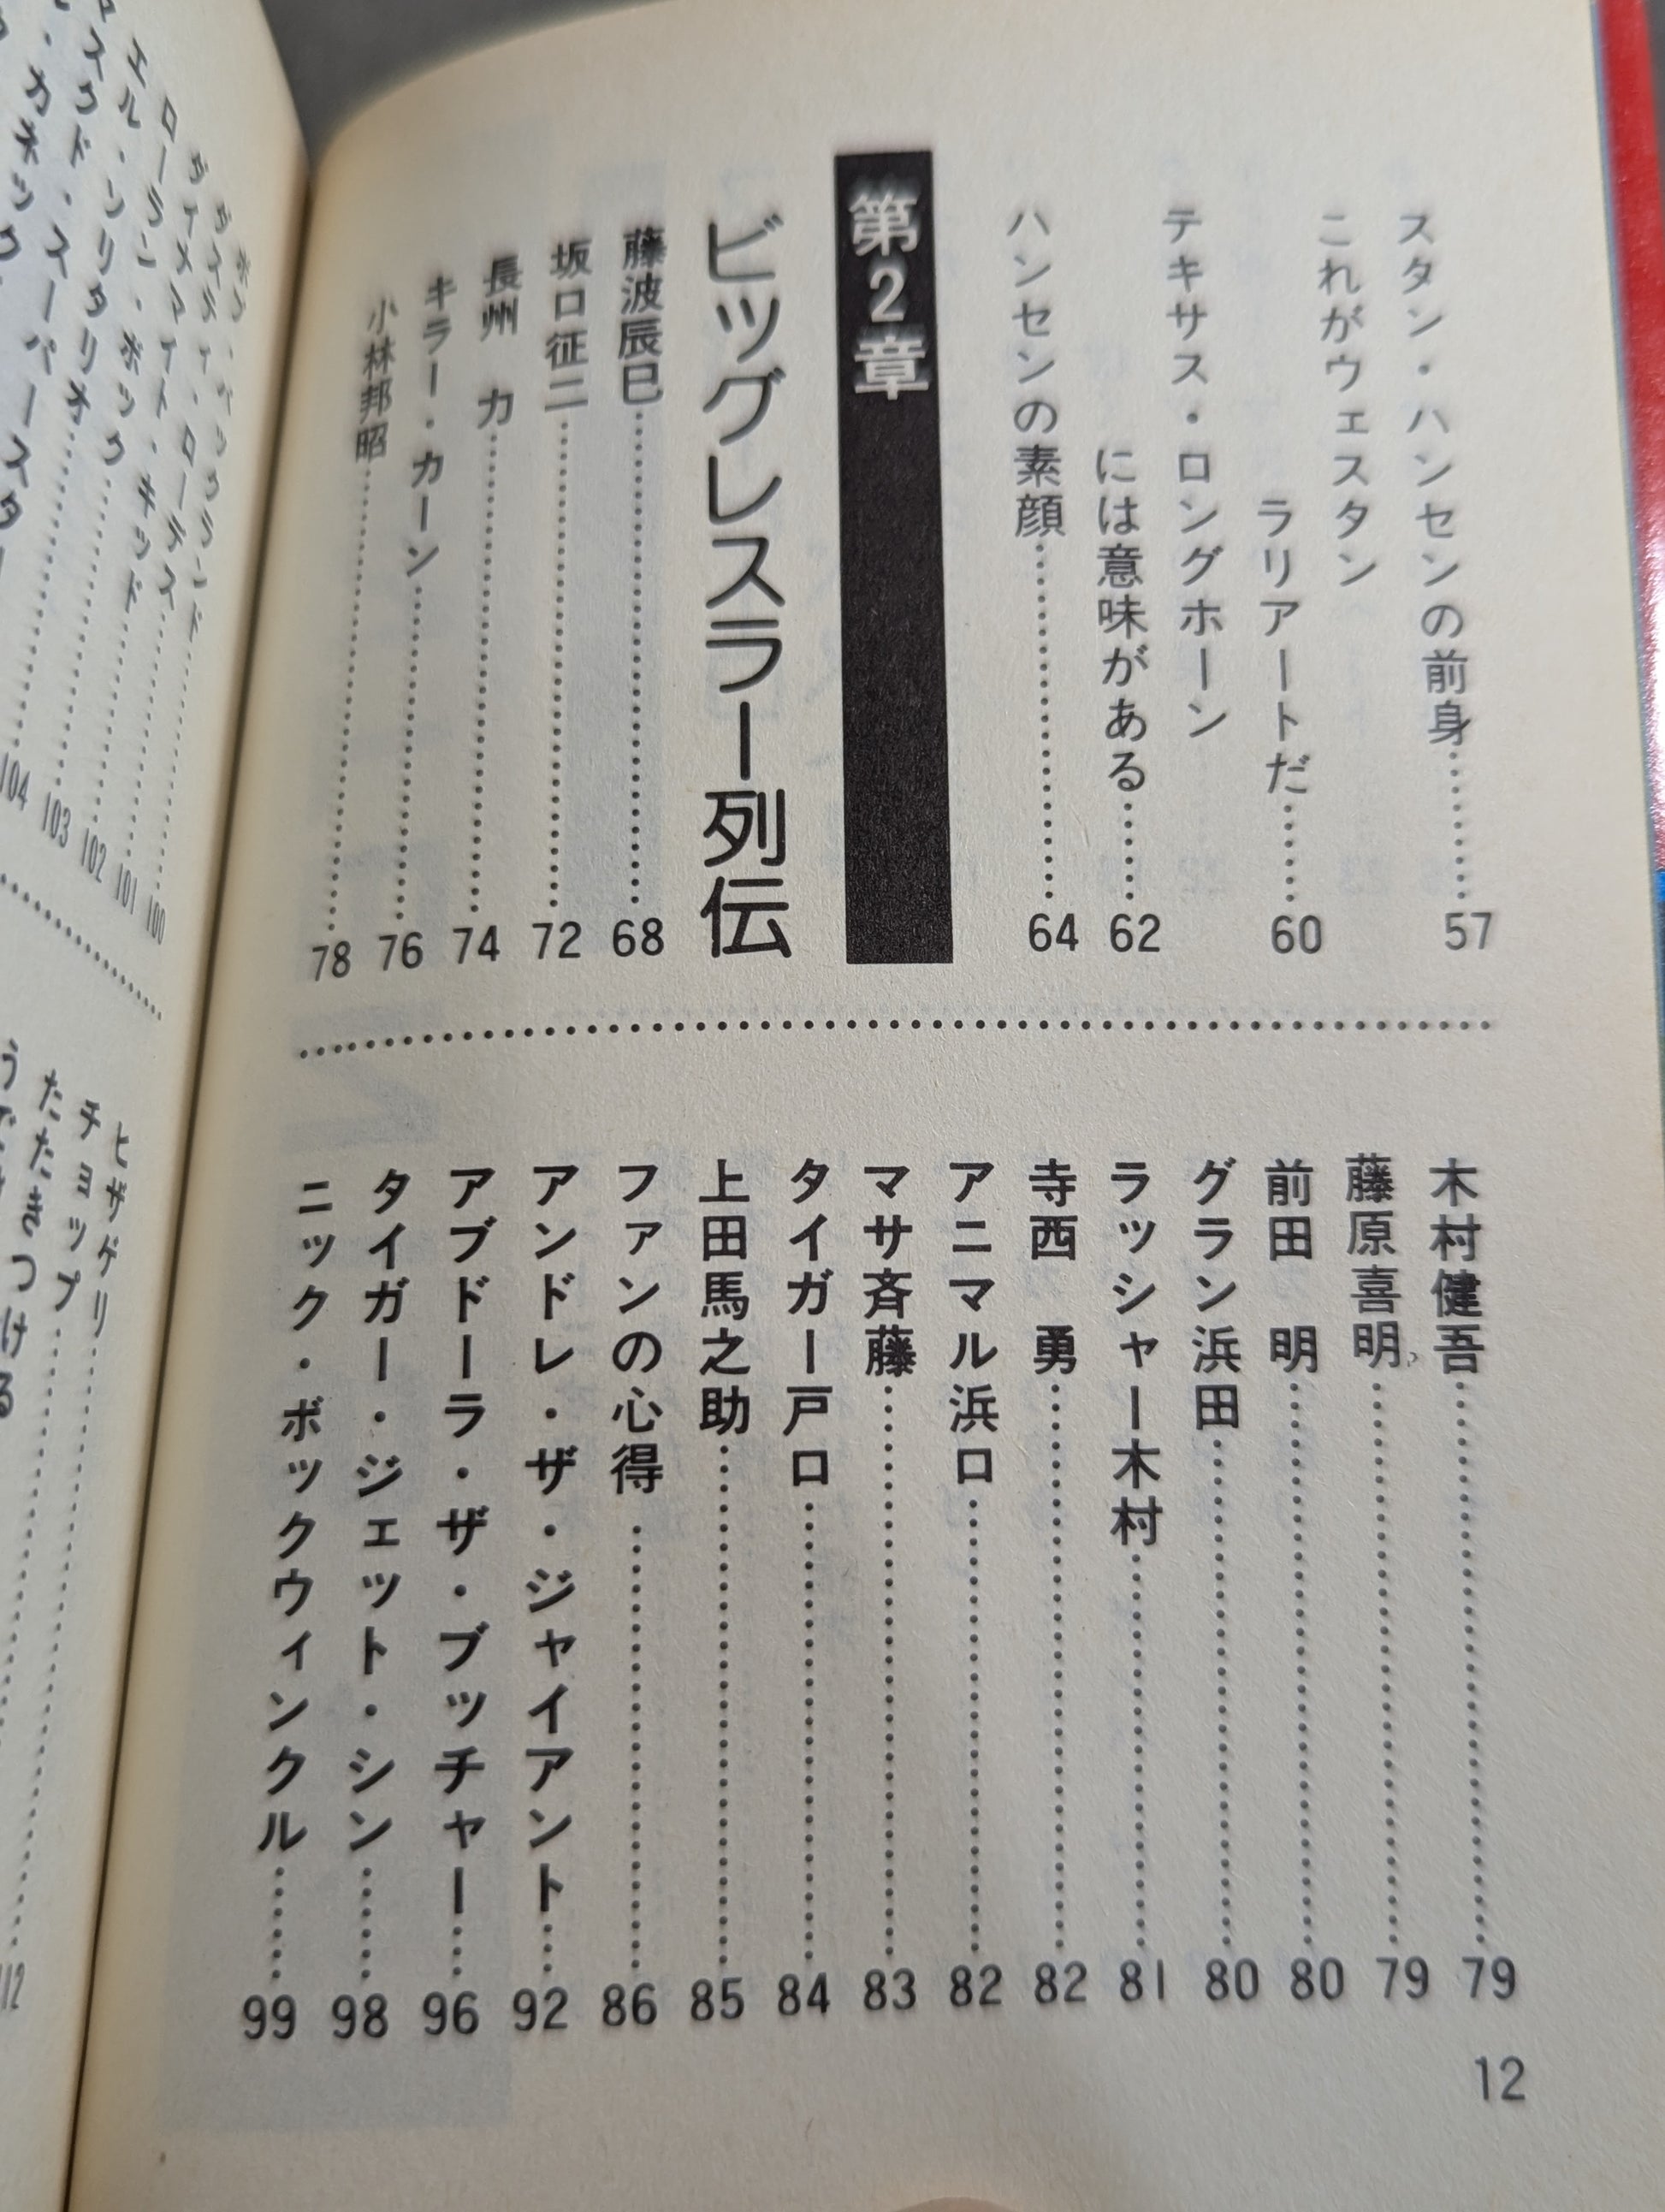 スタン・ハンセンの前身………57
これがウェスタン
ラリアートだ………60
テキサス・ロングホーン
には意味がある………62
ハンセンの素顔………64
第2章
ビッグレスラー列伝
藤波辰巳………68
坂口征二………72
長州　力………74
キラー・カーン………76
小林邦昭………78
木村健吾………79
藤原喜明………79
前田　明………80
グラン浜田………80
ラッシャー木村………81
寺西　勇………82
アニマル浜口………82
マサ斉藤………83
タイガー戸口………84
上田馬之助………85
ファンの心得………86
アンドレ・ザ・ジャイアント………92
アブドーラ・ザ・ブッチャー………96
タイガー・ジェット・シン………98
ニック・ボックウィンクル………99
12
ボブ・バックランド………100
ダスティ・ローデス………101
ダイナマイト・キッド………102
ローラン・ボック………103
エル・ソリタリオ………104
ヒザゲリ
チョップ
たたきつける
112